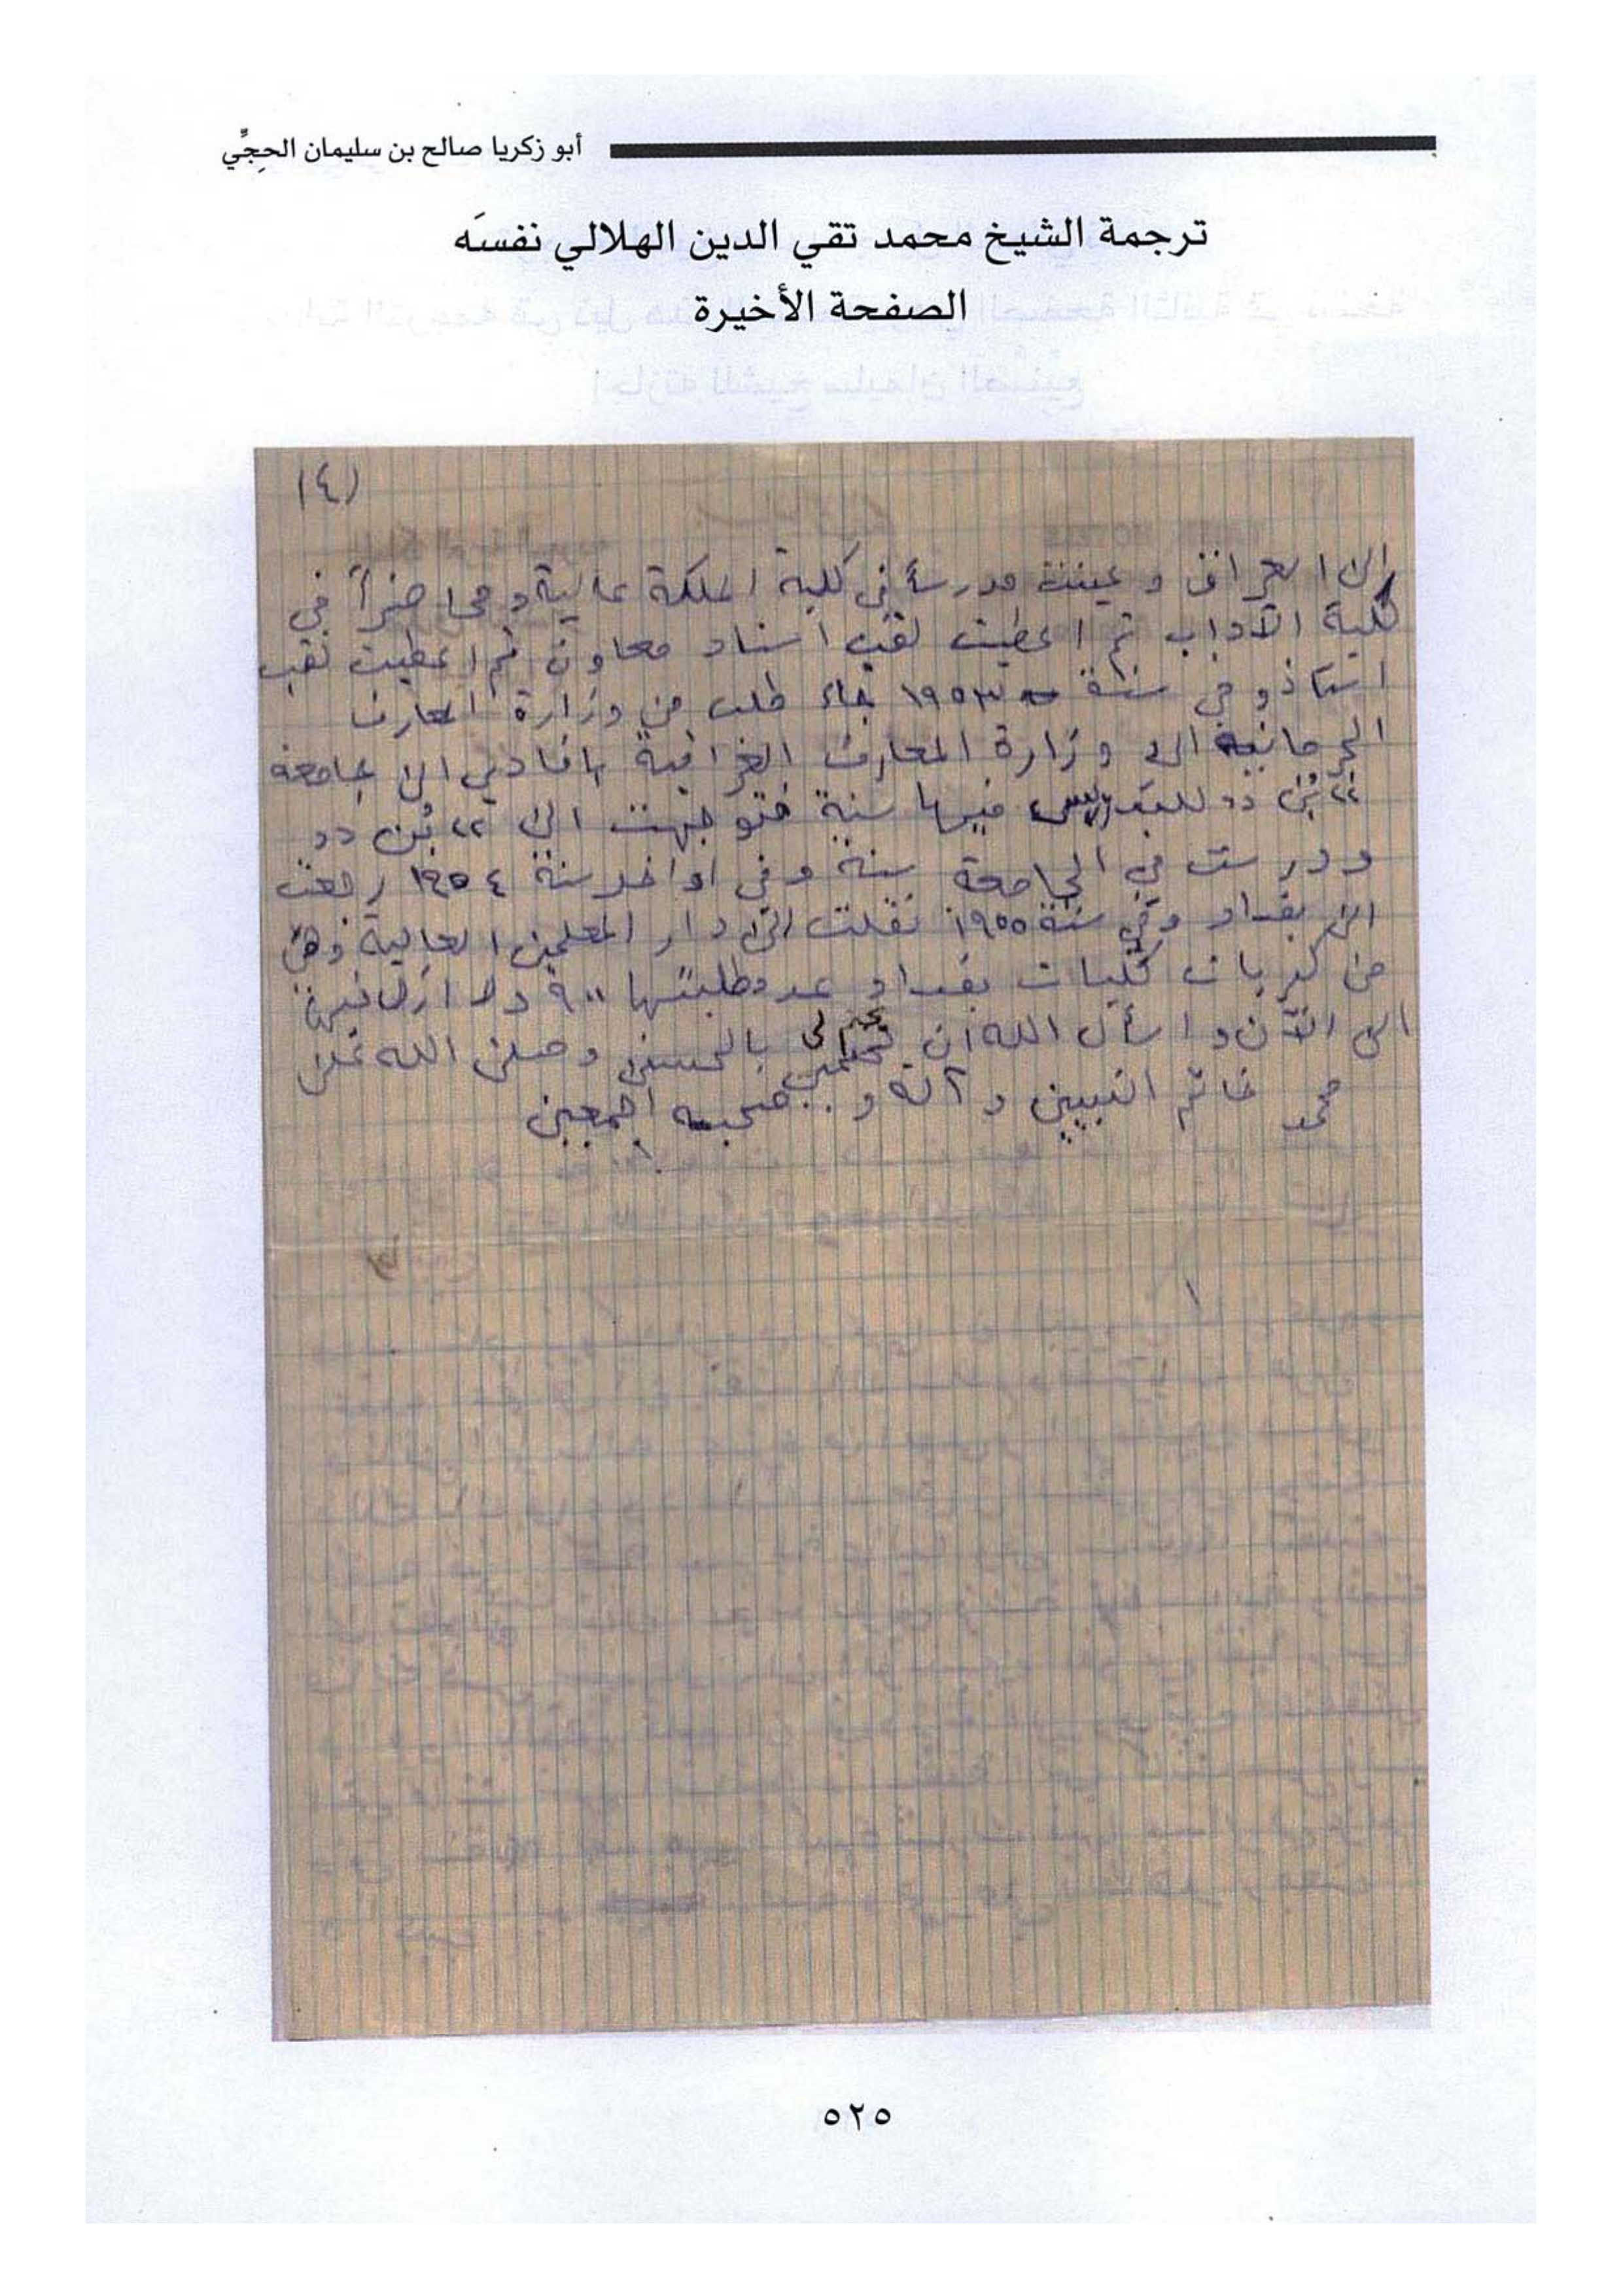 أبو زكريا صالح بن سليمان الحِجِّي
ترجمة الشيخ محمد تقي الدين الهلالي نفسَه
الصفحة الأخيرة
(٤)
الى العراق وعينت مدرساً في كلية الملكة عالية ومحاضراً في
كلية الآداب ثم اعطيت لقب استاذ معاون ثم اعطيت لقب
استاذ وفي سنة ١٩٥٣ جاء طلب من وزارة المعارف
الجرمانية الى وزارة المعارف العراقية بإيفادي الى جامعة
"بُن" للتدريس فيها سنة فتوجهت الى "بُن"
ودرست في الجامعة سنة وفي اواخر سنة ١٩٥٤ رجعت
الى بغداد وفي سنة ١٩٥٥ نقلت الى دار المعلمين العالية وهي
من كبريات كليات بغداد عدد طلبتها ٩٠٠ ولا ازال فيها
الى الآن و اسأل الله ان يختم لي بالحسنى وصلى الله على
محمد خاتم النبيين و آله و صحبه اجمعين
٥٢٥